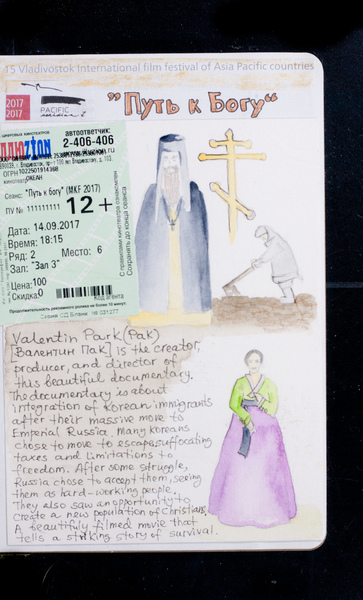 15 Vladivostok International film festival of Asia Pacific countries
2017
2017
PACIFIC
meridian
"Путь к Богу"
автоответчик:
2-406-406
ИЛЛЮZION
г. Владивосток
ОГРН 1022501914368
кинотеатр ОКЕАН
Сеанс: "Путь к богу" (MKF 2017)
ПУ № 111111111 12+
Дата: 14.09.2017
Время: 18:15
Ряд: 2 Место: 6
Зал: "Зал 3"
Цена: 100
Скидка 0
Код агента
С правилами кинотеатра ознакомлен
Сохранять до конца сеанса
Продолжительность рекламного ролика не более 10 минут.
Valentin Park (Pak)
[Валентин Пак] is the creator,
producer, and director of
this beautiful documentary.
The documentary is about
integration of Korean immigrants
after their massive move to
Emperial Russia. Many Koreans
chose to move to escape suffocating
taxes and limitations to
freedom. After some struggle,
Russia chose to accept them, seeing
them as hard-working people.
They also saw an opportunity to
create a new population of Christians.
A beautifuly filmed movie that
tells a striking story of survival.